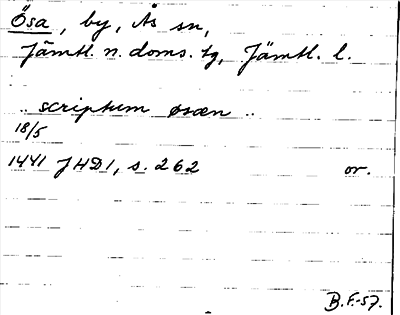 Ösa, by, Ås sn,
Jämtl. n. doms. tg, Jämtl. l.
.. scriptum øsæn ..
18/5
1441 JHD1, s. 262 or.
B.F.-57.